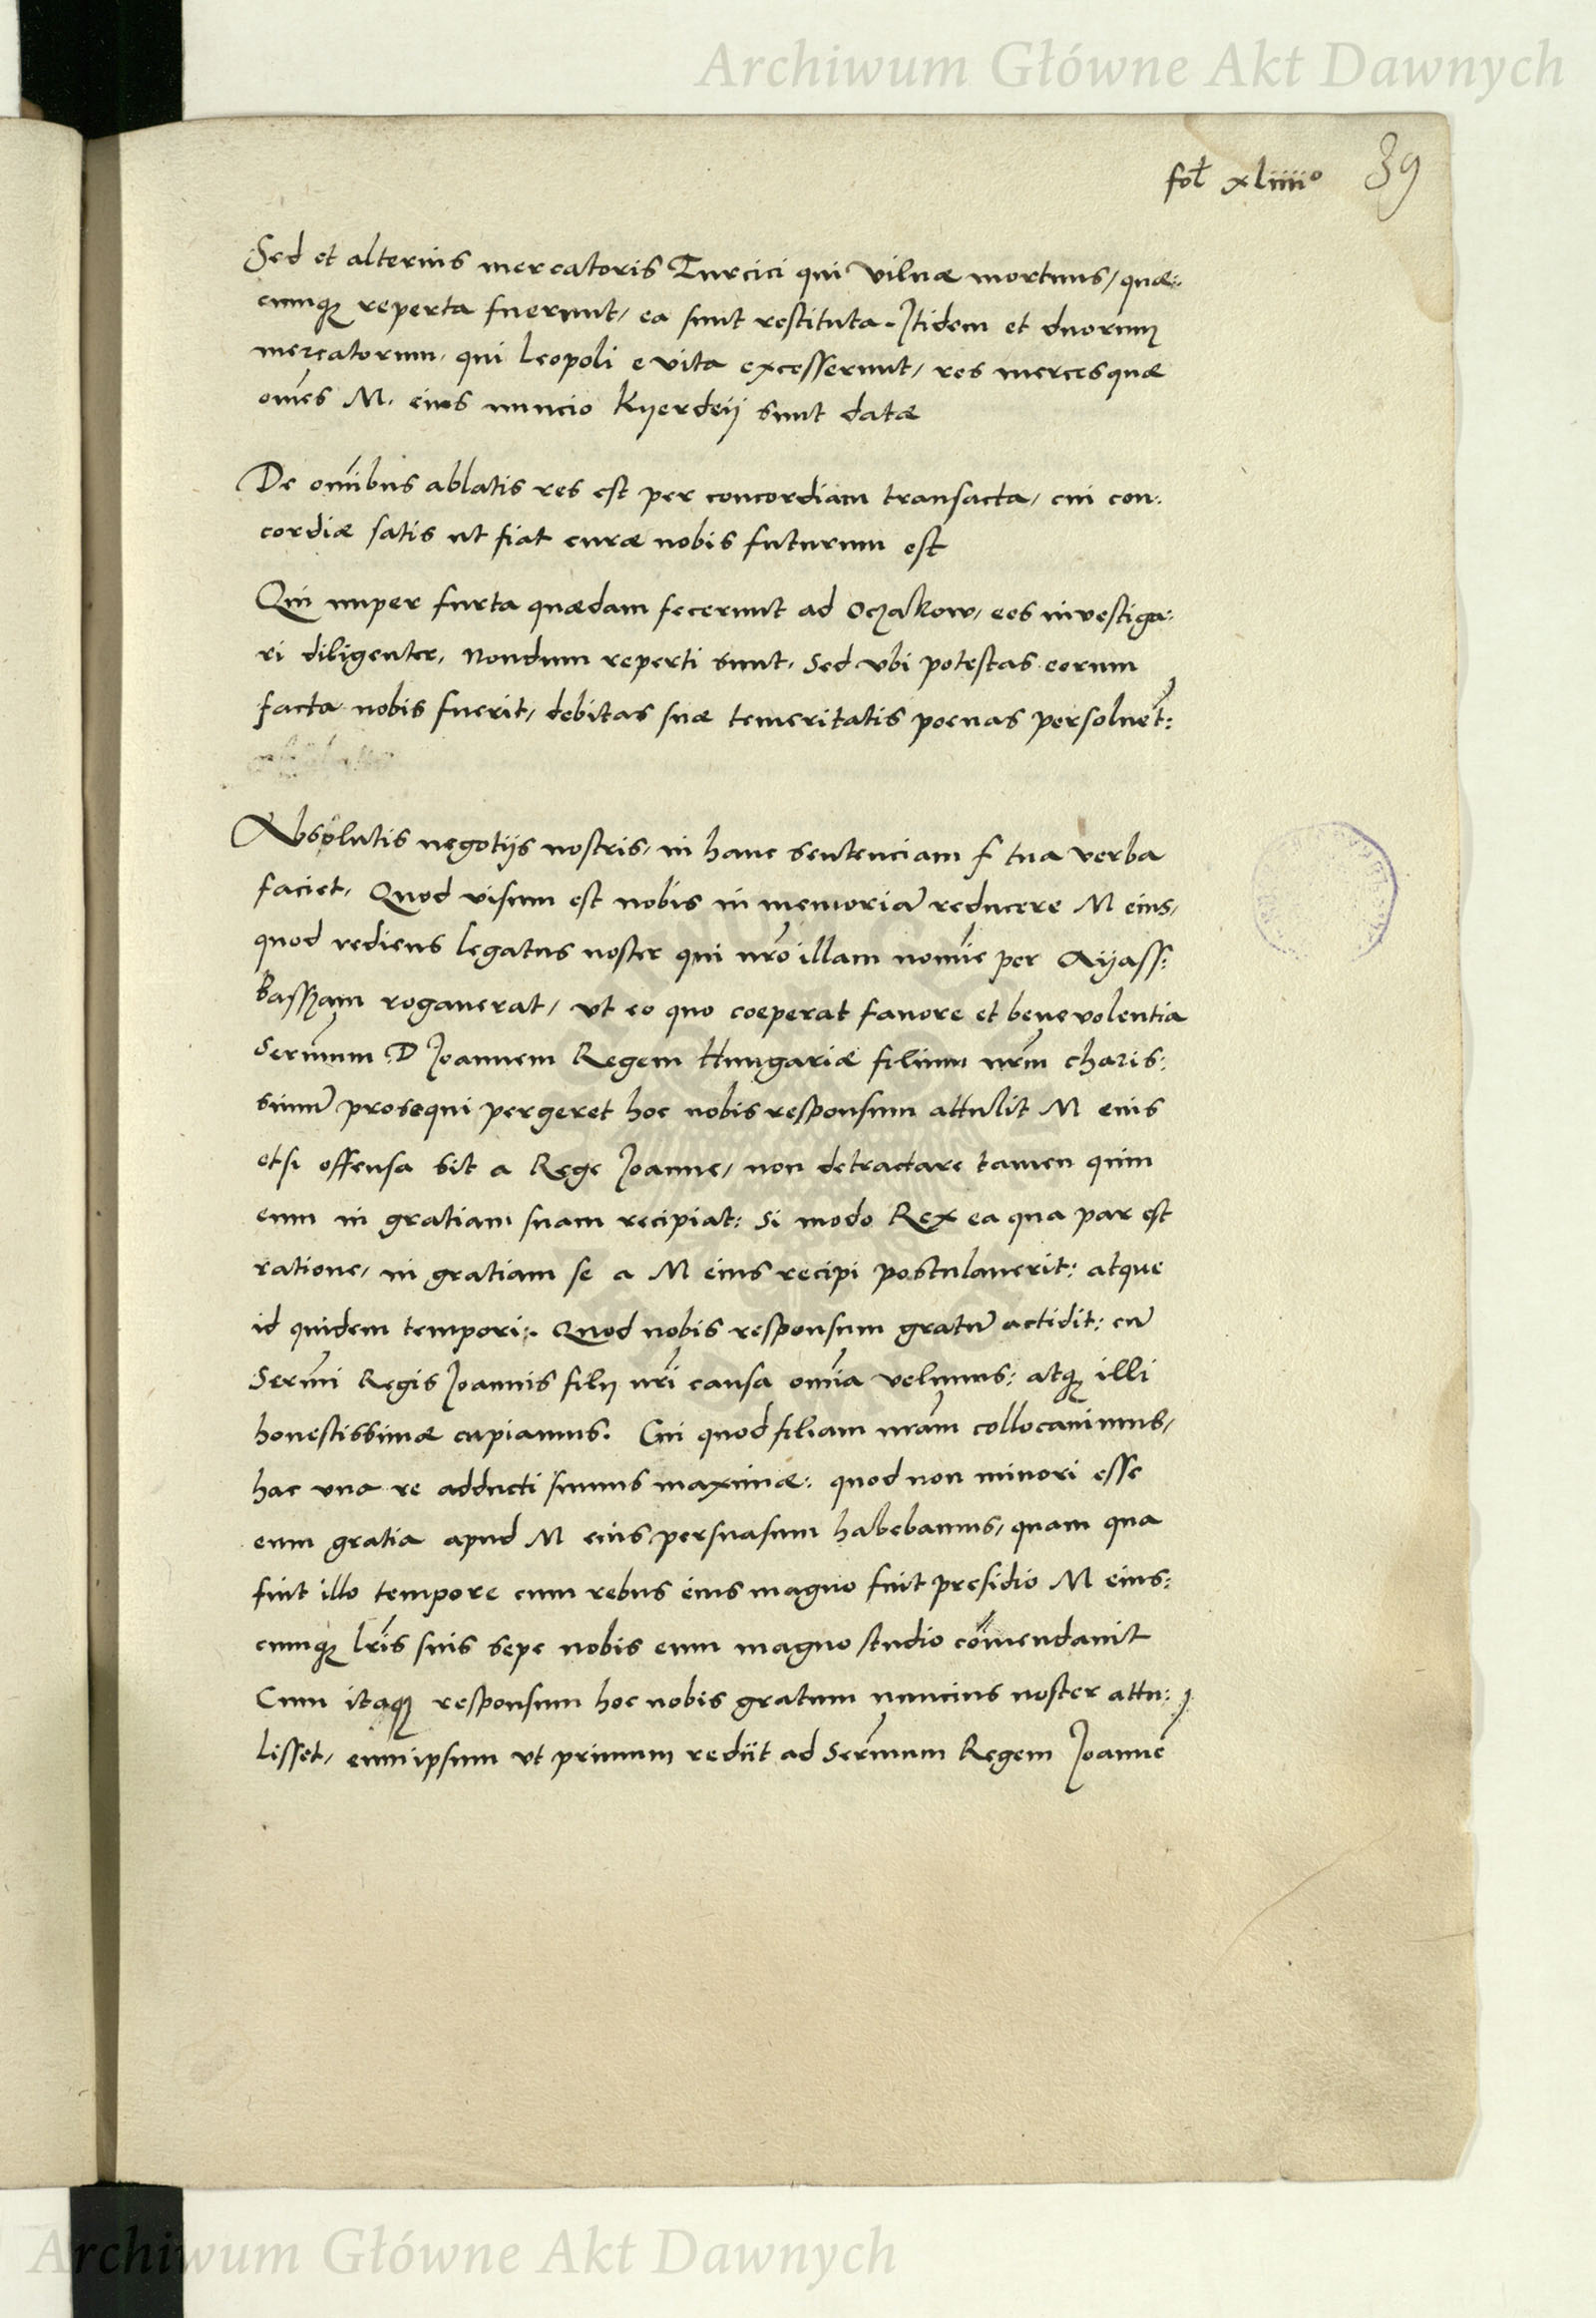 Archiwum Główne Akt Dawnych
fol xliiii° 39
Sed et alterius mercatoris Turcici qui Vilnæ mortuus, quæ:
cumq reperta fuerunt, ea sunt restituta. Itidem et duorum
mercatorum, qui Leopoli e vita excesserunt, res mercesquæ
oms M. eius nuncio Kyerdeij sunt datæ
De omibus ablatis res est per concordiam transacta, cui con:
cordiæ satis ut fiat curæ nobis futurum est
Qui nuper furta quædam fecerunt ad Oczakow, eos investiga:
ri diligenter, Nondum reperti sunt. Sed vbi potestas eorum
facta nobis fuerit, debitas suæ temeritatis poenas persoluet:
Absolutis negotijs nostris, in hanc sentenciam f tua verba
faciet. Quod visum est nobis in memoriā reducere M eius,
quod rediens legatus noster qui nro illam nomie per Aijass:
Basszam rogauerat, vt eo quo coeperat fauore et benevolentia
Sermum D Joannem Regem Hungariæ filium nrm charis:
simū prosequi pergeret hoc nobis responsum attulit M eius
etsi offensa sit a Rege Joanne, non detractare tamen quim
eum in gratiam suam recipiat: Si modo Rex ea qua par est
ratione, in gratiam se a M eius recipi postulauerit: atque
id quidem tempori:. Quod nobis responsum gratū actidit: cū
Sermi Regis Joannis filij nri causa omia velimus: atq illi
honestissimæ cupiamus. Cui quod filiam nram collocauimus,
hac vna re adducti sumus maximæ: quod non minori esse
eum gratia apud M eius persuasum habebamus, quam qua
fuit illo tempore cum rebus eius magno fuit presidio M eius:
cumq lris suis sepe nobis eum magno studio comendauit
Cum itaq responsum hoc nobis gratum nuncius noster attu:
lisset, eum ipsum vt primum rediit ad Sermum Regem Joannē
Archiwum Główne Akt Dawnych